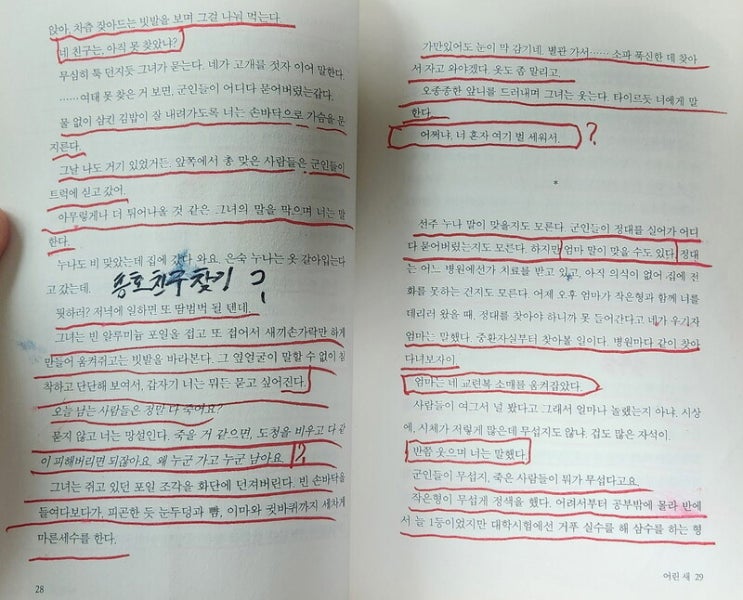 앉아, 차츰 잦아드는 빗발을 보며 그걸 나눠 먹는다.
네 친구는, 아직 못 찾았냐?
무심히 툭 던지듯 그녀가 묻는다. 네가 고개를 젓자 이어 말한다.
……여태 못 찾은 거 보면, 군인들이 어디다 묻어버렸는갑다.
물 없이 삼킨 김밥이 잘 내려가도록 너는 손바닥으로 가슴을 문
지른다.
그날 나도 거기 있었거든. 앞쪽에서 총 맞은 사람들은 군인들이
트럭에 싣고 갔어.
아무렇게나 더 튀어나올 것 같은 그녀의 말을 막으며 너는 말
한다.
누나도 비 맞았는데 집에 갔다 와요. 은숙 누나는 옷 갈아입는다
고 갔는데.
친구찾기?
뭣하러? 저녁에 일하면 또 땀범벅 될 텐데.
그녀는 빈 알루미늄 포일을 접고 또 접어서 새끼손가락만 하게
만들어 움켜쥐고는 빗발을 바라본다. 그 옆얼굴이 말할 수 없이 침
착하고 단단해 보여서, 갑자기 너는 뭐든 묻고 싶어진다.
오늘 남는 사람들은 정말 다 죽어요?
묻지 않고 너는 망설인다. 죽을 거 같으면, 도청을 비우고 다 같
이 피해버리면 되잖아요. 왜 누군 가고 누군 남아요.
?
그녀는 쥐고 있던 포일 조각을 화단에 던져버린다. 빈 손바닥을
들여다보다가, 피곤한 듯 눈두덩과 뺨, 이마와 귓바퀴까지 세차게
마른세수를 한다.
28
가만있어도 눈이 막 감기네. 별관 가서…… 소파 푹신한 데 찾아
서 자고 와야겠다. 옷도 좀 말리고.
오종종한 앞니를 드러내며 그녀는 웃는다. 타이르듯 너에게 말
한다.
어쩌냐, 너 혼자 여기 벌 세워서.
?
*
선주 누나 말이 맞을지도 모른다. 군인들이 정대를 실어가 어디
다 묻어버렸는지도 모른다. 하지만 엄마 말이 맞을 수도 있다. 정대
는 어느 병원에선가 치료를 받고 있고, 아직 의식이 없어 집에 전
화를 못하는 건지도 모른다. 어제 오후 엄마가 작은형과 함께 너를
데리러 왔을 때, 정대를 찾아야 하니까 못 들어간다고 네가 우기자
엄마는 말했다. 중환자실부터 찾아볼 일이다. 병원마다 같이 찾아
다녀보자이.
엄마는 네 교련복 소매를 움켜잡았다.
사람들이 여그서 널 봤다고 그래서 얼마나 놀랬는지 아냐. 시상
에, 시체가 저렇게 많은데 무섭지도 않냐. 겁도 많은 자석이.
반쯤 웃으며 너는 말했다.
군인들이 무섭지, 죽은 사람들이 뭐가 무섭다고요.
작은형이 무섭게 정색을 했다. 어려서부터 공부밖에 몰라 반에
서 늘 1등이었지만 대학시험에선 거푸 실수를 해 삼수를 하는 형
어린 새 29